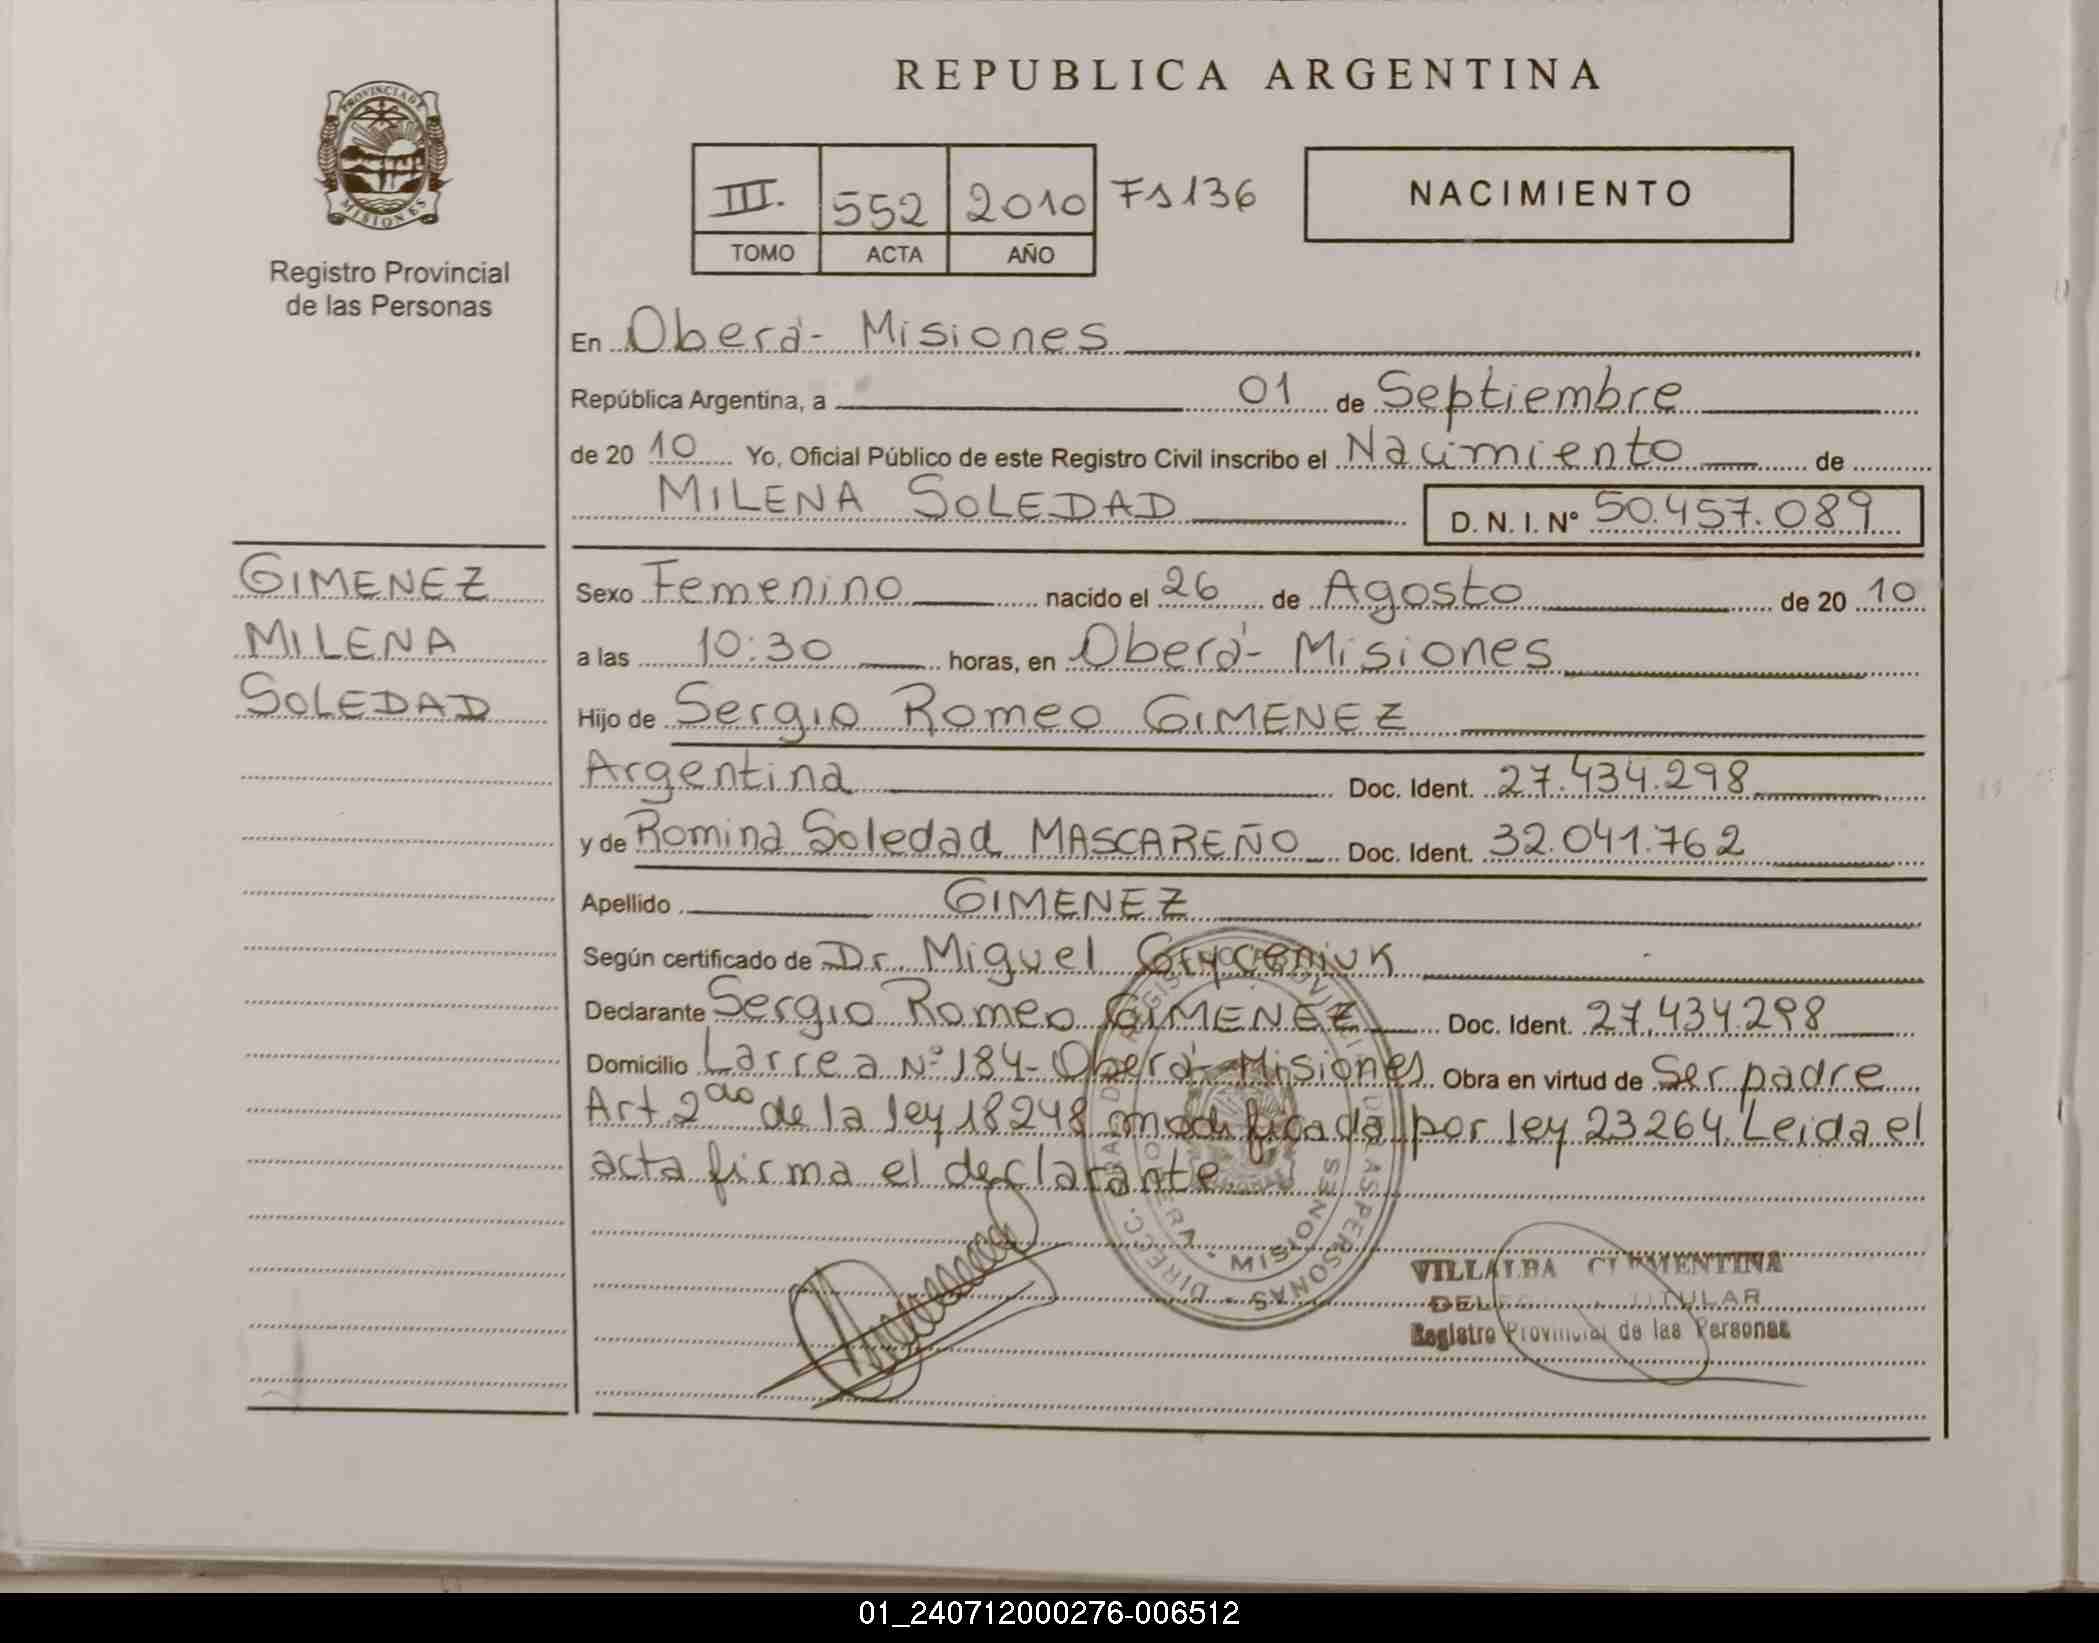 REPUBLICA ARGENTINA
PROVINCIA DE MISIONES
Registro Provincial
de las Personas
III. 552 2010 Fs 136
TOMO ACTA AÑO
NACIMIENTO
En Oberá - Misiones
República Argentina, a 01 de Septiembre
de 2010 Yo, Oficial Público de este Registro Civil inscribo el Nacimiento de
MILENA SOLEDAD D. N. I. Nº 50.457.089
GIMENEZ
MILENA
SOLEDAD
Sexo Femenino nacido el 26 de Agosto de 2010
a las 10:30 horas, en Oberá - Misiones
Hijo de Sergio Romeo GIMENEZ
Argentina Doc. Ident. 27.434.298
y de Romina Soledad MASCAREÑO Doc. Ident. 32.041.762
Apellido GIMENEZ
Según certificado de Dr. Miguel
Declarante Sergio Romeo GIMENEZ Doc. Ident. 27.434.298
Domicilio Larrea Nº 184 - Oberá - Misiones Obra en virtud de Ser padre
Art. 2do de la ley 18248 modificada por ley 23264. Leida el
acta firma el declarante
MISIONES
VILLALBA CLEMENTINA
TITULAR
Registro Provincial de las Personas
01_240712000276-006512